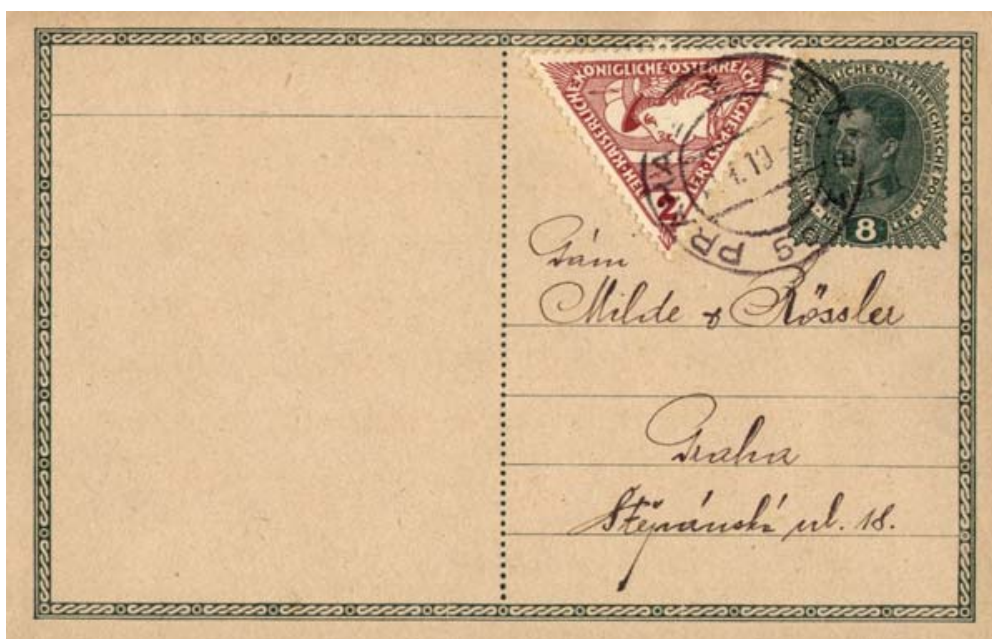 KAISERLICHE KÖNIGLICHE ÖSTERREICHISCHE POST
2 HELLER
KAISERLICHE KÖNIGLICHE ÖSTERREICHISCHE POST
8
PRAHA
Pám
Milde & Rössler
Praha
Štěpánská ul. 18.